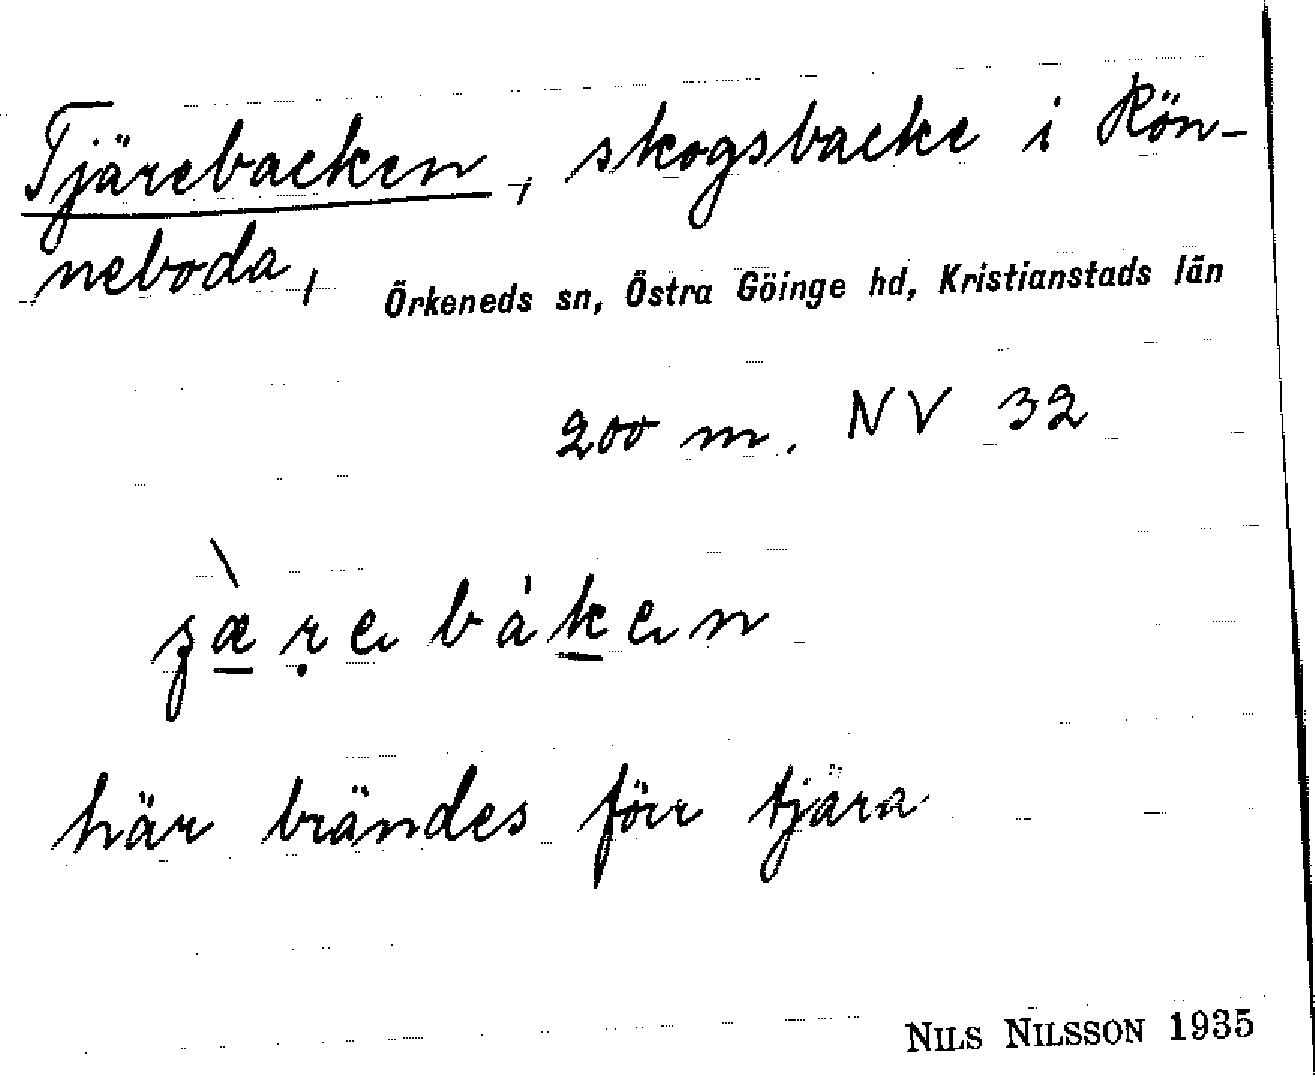 Tjärebacken, skogsbacke i Rön-
neboda,
Örkeneds sn, Östra Göinge hd, Kristianstads län
200 m. NV 32
här brändes förr tjära
NILS NILSSON 1935